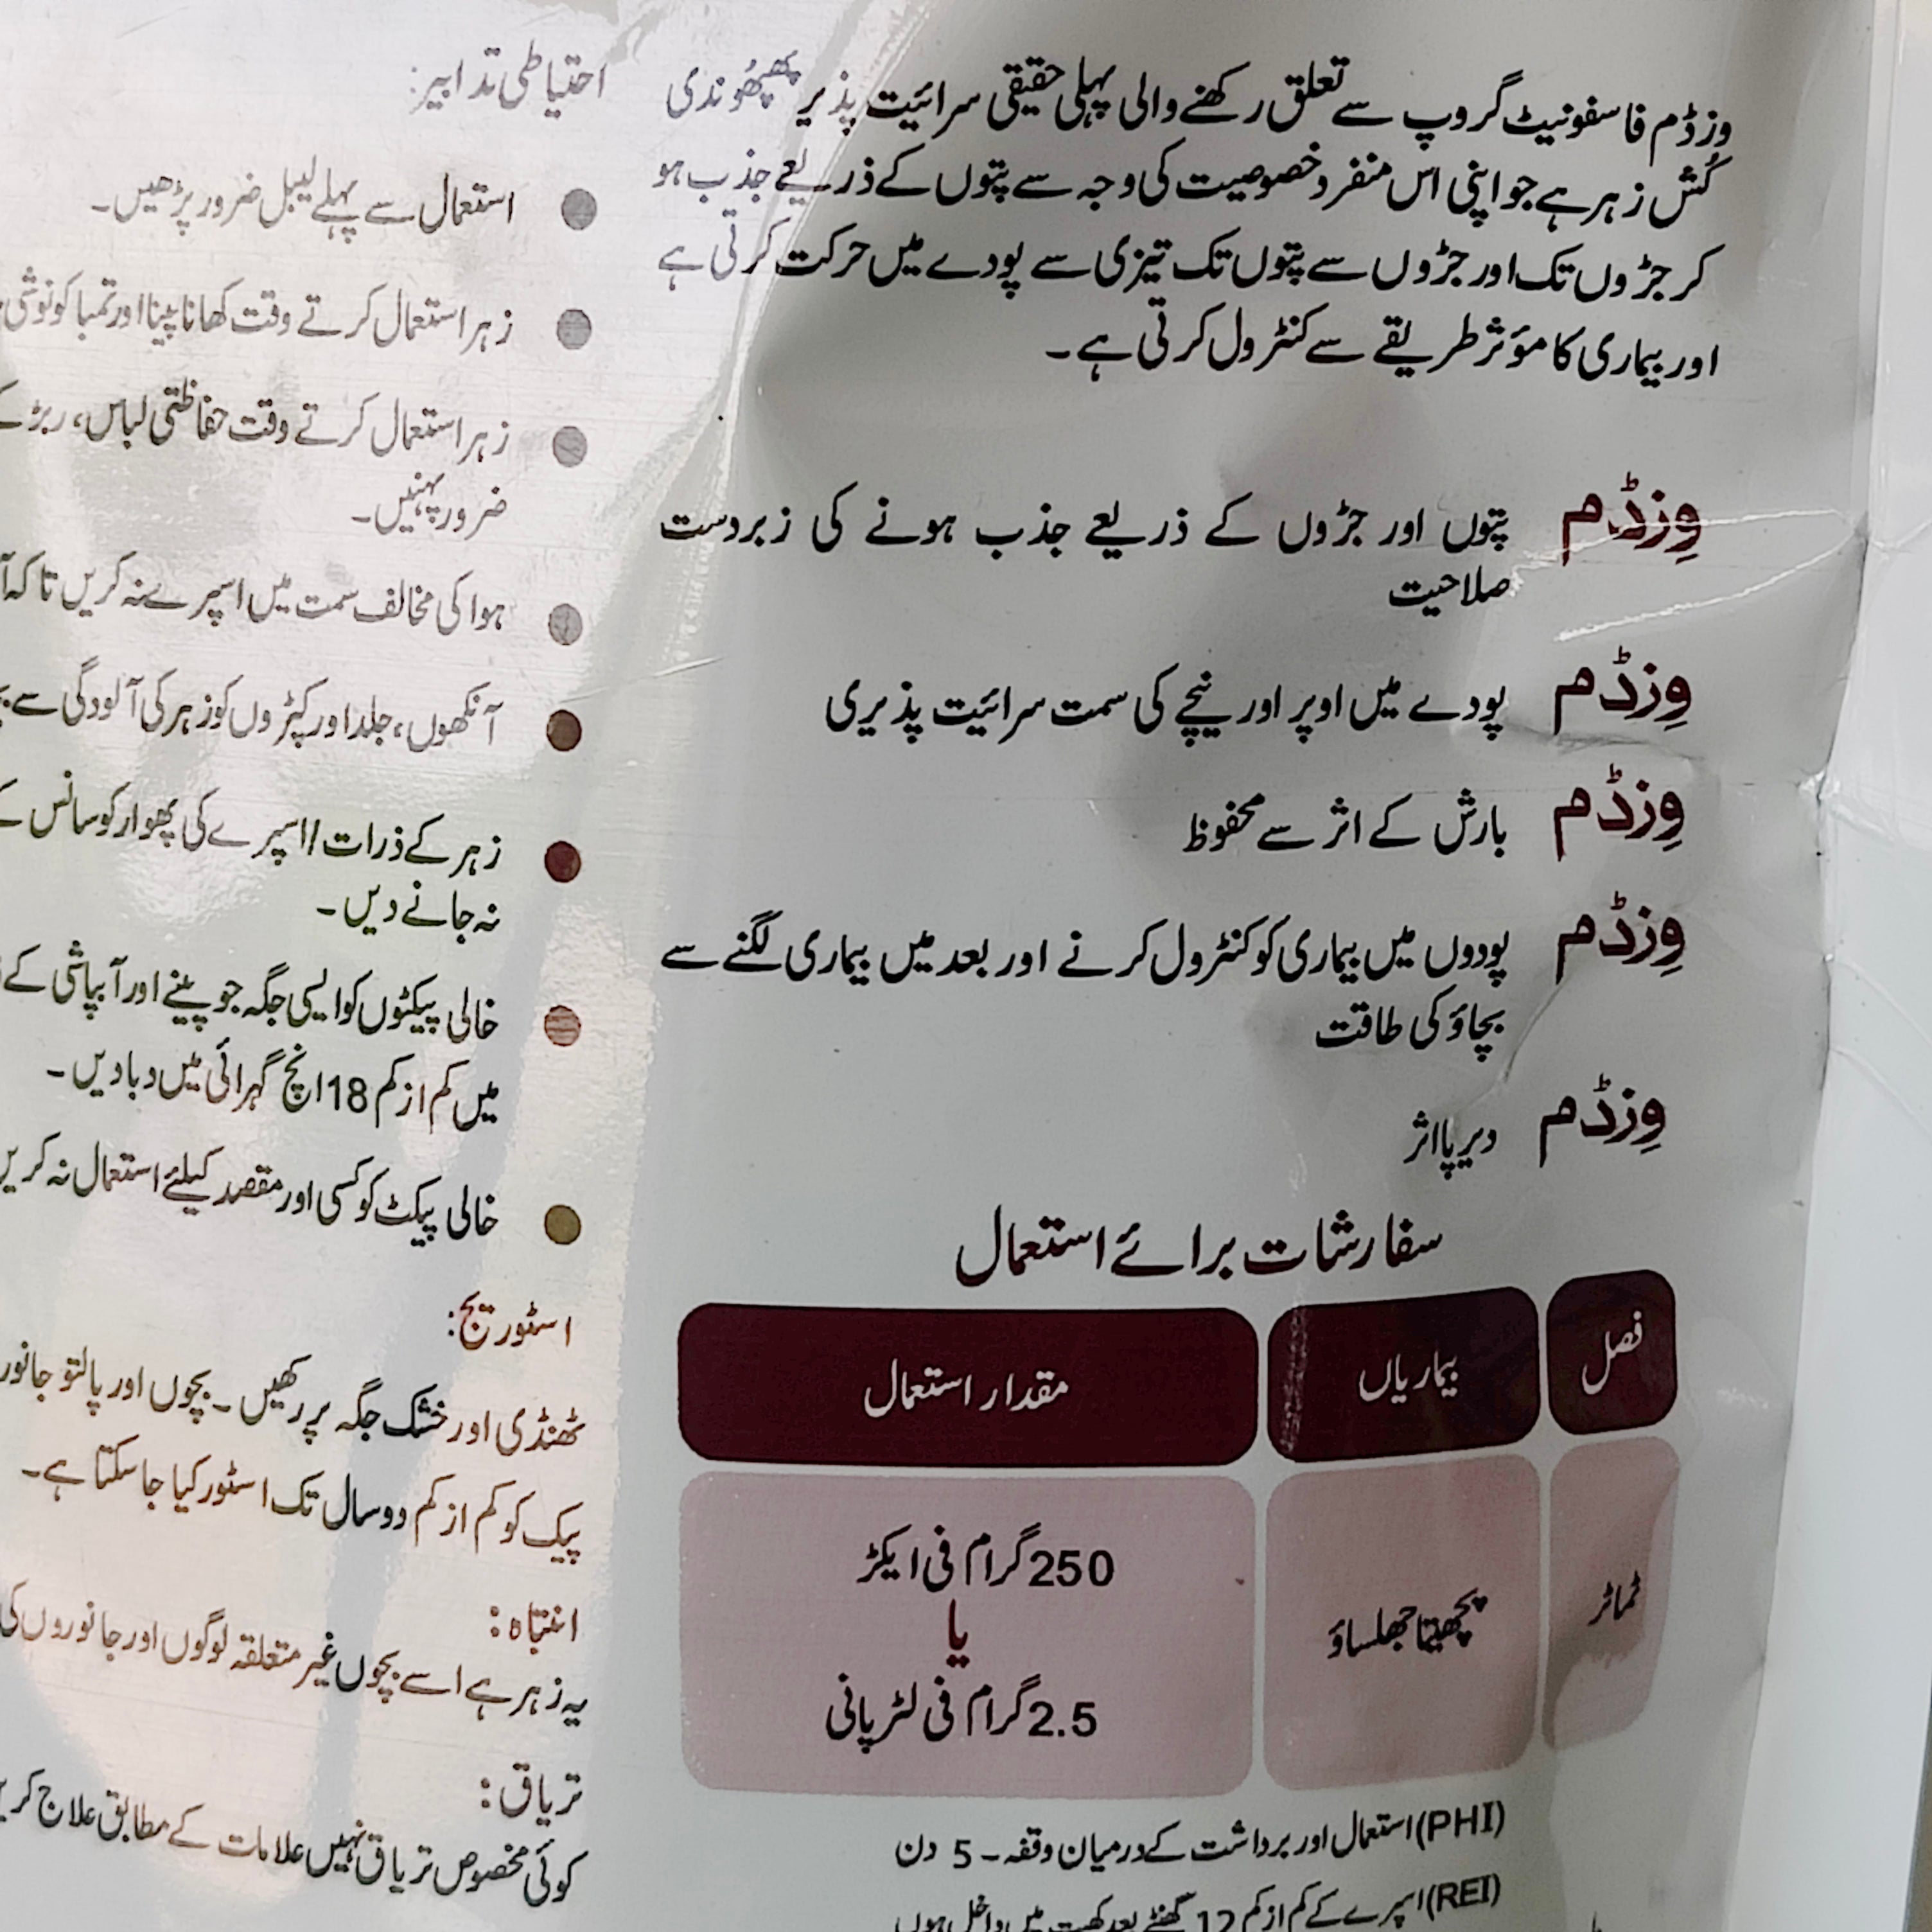 وزڈم فاسفونیٹ گروپ سے تعلق رکھنے والی پہلی حقیقی سرائیت پذیر پھپھُوندی
کُش زہر ہے جو اپنی اس منفرد خصوصیت کی وجہ سے پتوں کے ذریعے جذب ہو
کر جڑوں تک اور جڑوں سے پتوں تک تیزی سے پودے میں حرکت کرتی ہے
اور بیماری کا مؤثر طریقے سے کنٹرول کرتی ہے۔
وِزڈم پتوں اور جڑوں کے ذریعے جذب ہونے کی زبردست
صلاحیت
وِزڈم پودے میں اوپر اور نیچے کی سمت سرائیت پذیری
وِزڈم بارش کے اثر سے محفوظ
وِزڈم پودوں میں بیماری کو کنٹرول کرنے اور بعد میں بیماری لگنے سے
بچاؤ کی طاقت
وِزڈم دیرپا اثر
سفارشات برائے استعمال
فصل بیماریاں مقدار استعمال
ٹماٹر پچھیتا جھلساؤ 250 گرام فی ایکڑ
یا
2.5 گرام فی لٹر پانی
(PHI) استعمال اور برداشت کے درمیان وقفہ۔ 5 دن
(REI) اسپرے کے کم از کم 12 گھنٹے بعد کھیت میں داخل ہوں
احتیاطی تدابیر:
استعمال سے پہلے لیبل ضرور پڑھیں۔
زہر استعمال کرتے وقت کھانا پینا اور تمباکو نوشی
زہر استعمال کرتے وقت حفاظتی لباس، ربڑ کے
ضرور پہنیں۔
ہوا کی مخالف سمت میں اسپرے نہ کریں تاکہ
آنکھوں، جلد اور کپڑوں کو زہر کی آلودگی سے
زہر کے ذرات / اسپرے کی پھوار کو سانس کے
نہ جانے دیں۔
خالی پیکٹوں کو ایسی جگہ جو پینے اور آبپاشی کے
میں کم از کم 18 انچ گہرائی میں دبا دیں۔
خالی پیکٹ کو کسی اور مقصد کیلئے استعمال نہ کریں
اسٹوریج:
ٹھنڈی اور خشک جگہ پر رکھیں۔ بچوں اور پالتو جانور
پیک کو کم از کم دو سال تک اسٹور کیا جا سکتا ہے۔
انتباہ:
یہ زہر ہے اسے بچوں غیر متعلقہ لوگوں اور جانوروں کی
تریاق:
کوئی مخصوص تریاق نہیں علامات کے مطابق علاج کریں